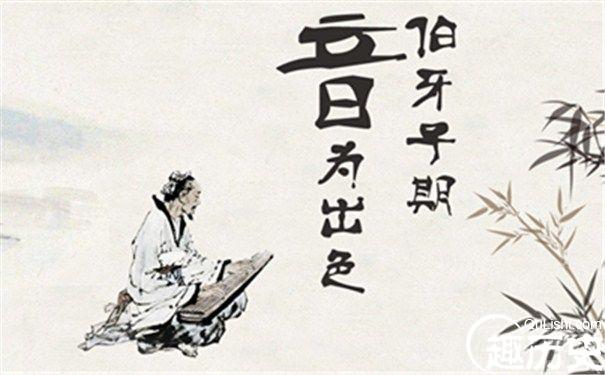 伯牙子期
音为出色
QuLishi.com
趣历史